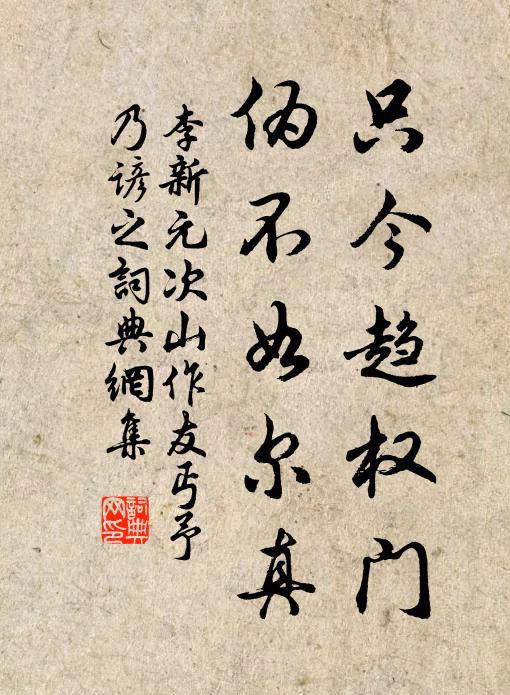 只今趋权门
伪不如尔真
李新元次山作友丐予
乃谚之詞典網集
詞典
网印